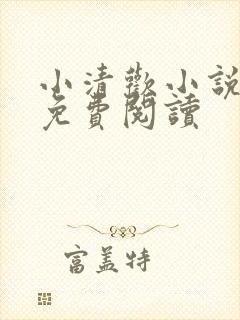 小清歡小說
免費閱讀
富蓋特